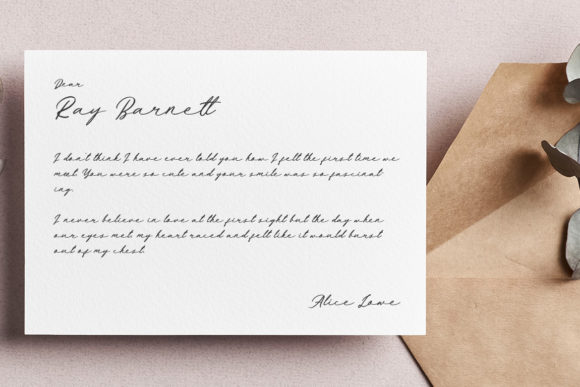 Dear
Ray Barnett
I don't think I have ever told you how I felt the first time we
meet. You were so cute and your smile was so fascinat
ing.
I never believe in love at the first sight but the day when
our eyes met, my heart raced and felt like it would burst
out of my chest.
Alice Lowe